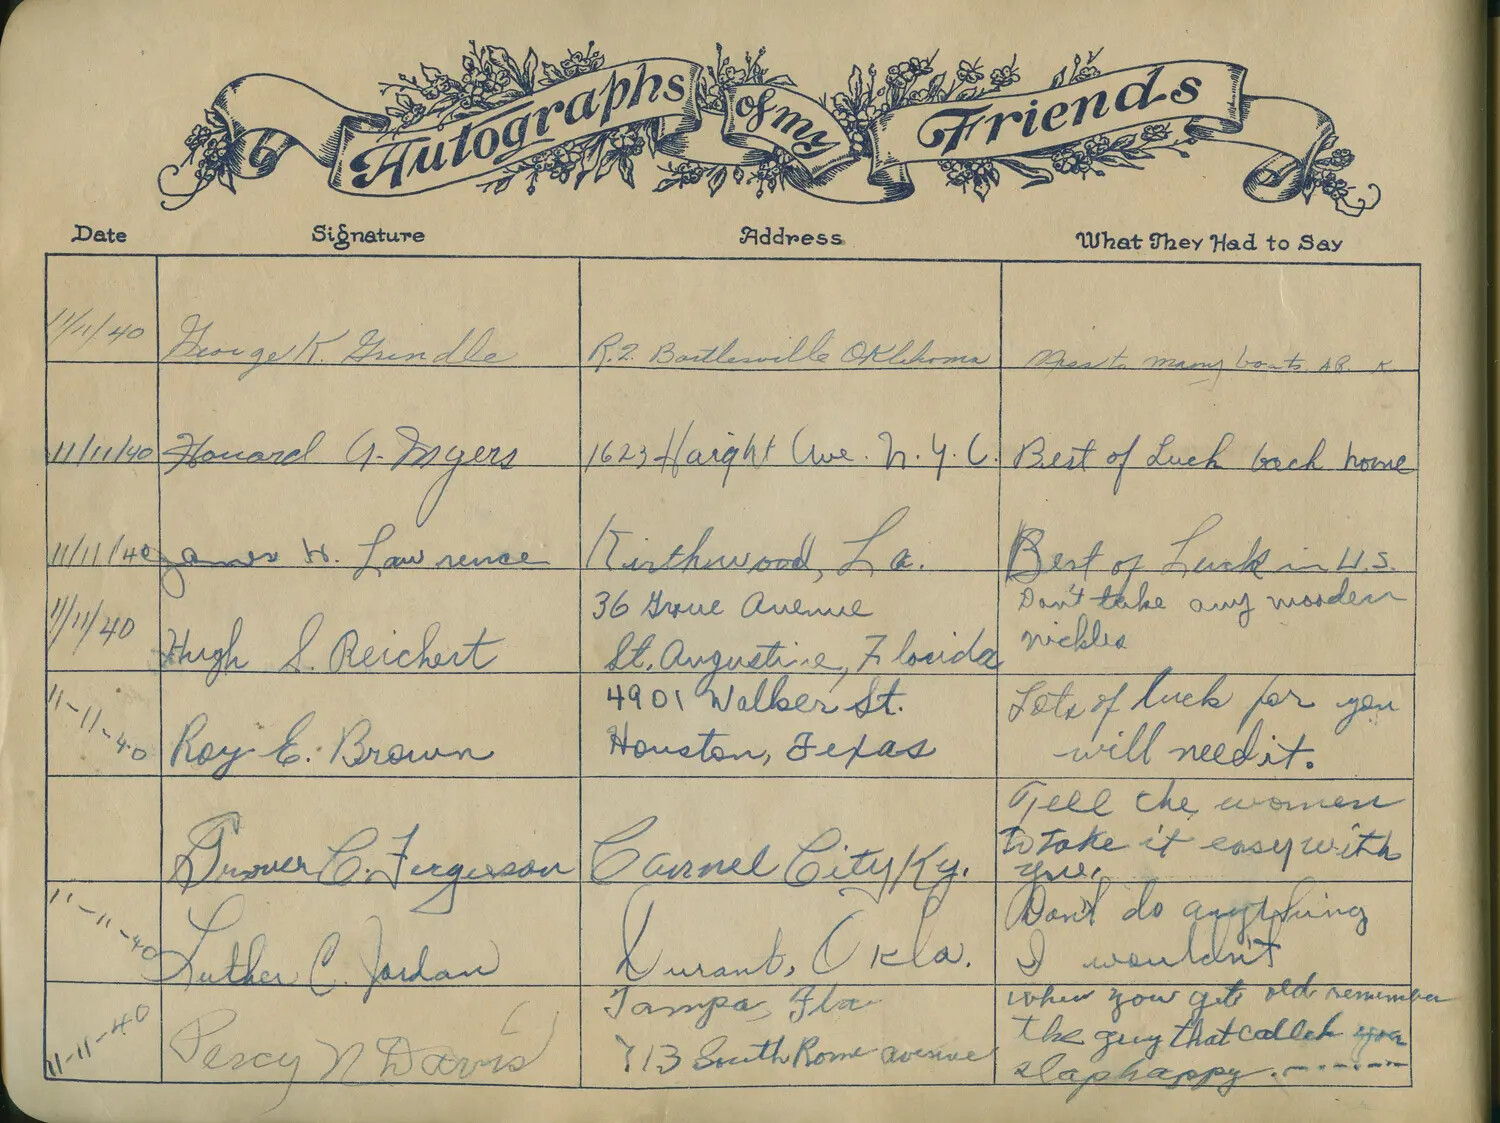 Autographs of my Friends
Date Signature Address What They Had to Say
11/11/40 George K. Grindle R.2. Bartlesville Oklahoma Miss to many boats
11/11/40 Howard A. Myers 1623 Haight Ave. N.Y.C. Best of Luck back home
11/11/40 James H. Lawrence La. Best of Luck in U.S.
11/11/40 Hugh S. Reichert 36 Grove Avenue
St. Augustine, Florida
Don't take any wooden
nickles
11-11-40 Roy E. Brown 4901 Walker St.
Houston, Texas
Lots of luck for you
will need it.
Grover C. Ferguson City Ky.
Tell the women
to take it easy with
you.
11-11-40 Luther C. Jordan Durant, Okla.
Don't do anything
I wouldn't
11-11-40 Percy N Davis Tampa, Fla
713 South Rome avenue
when you get old remember
the guy that called you
slaphappy.